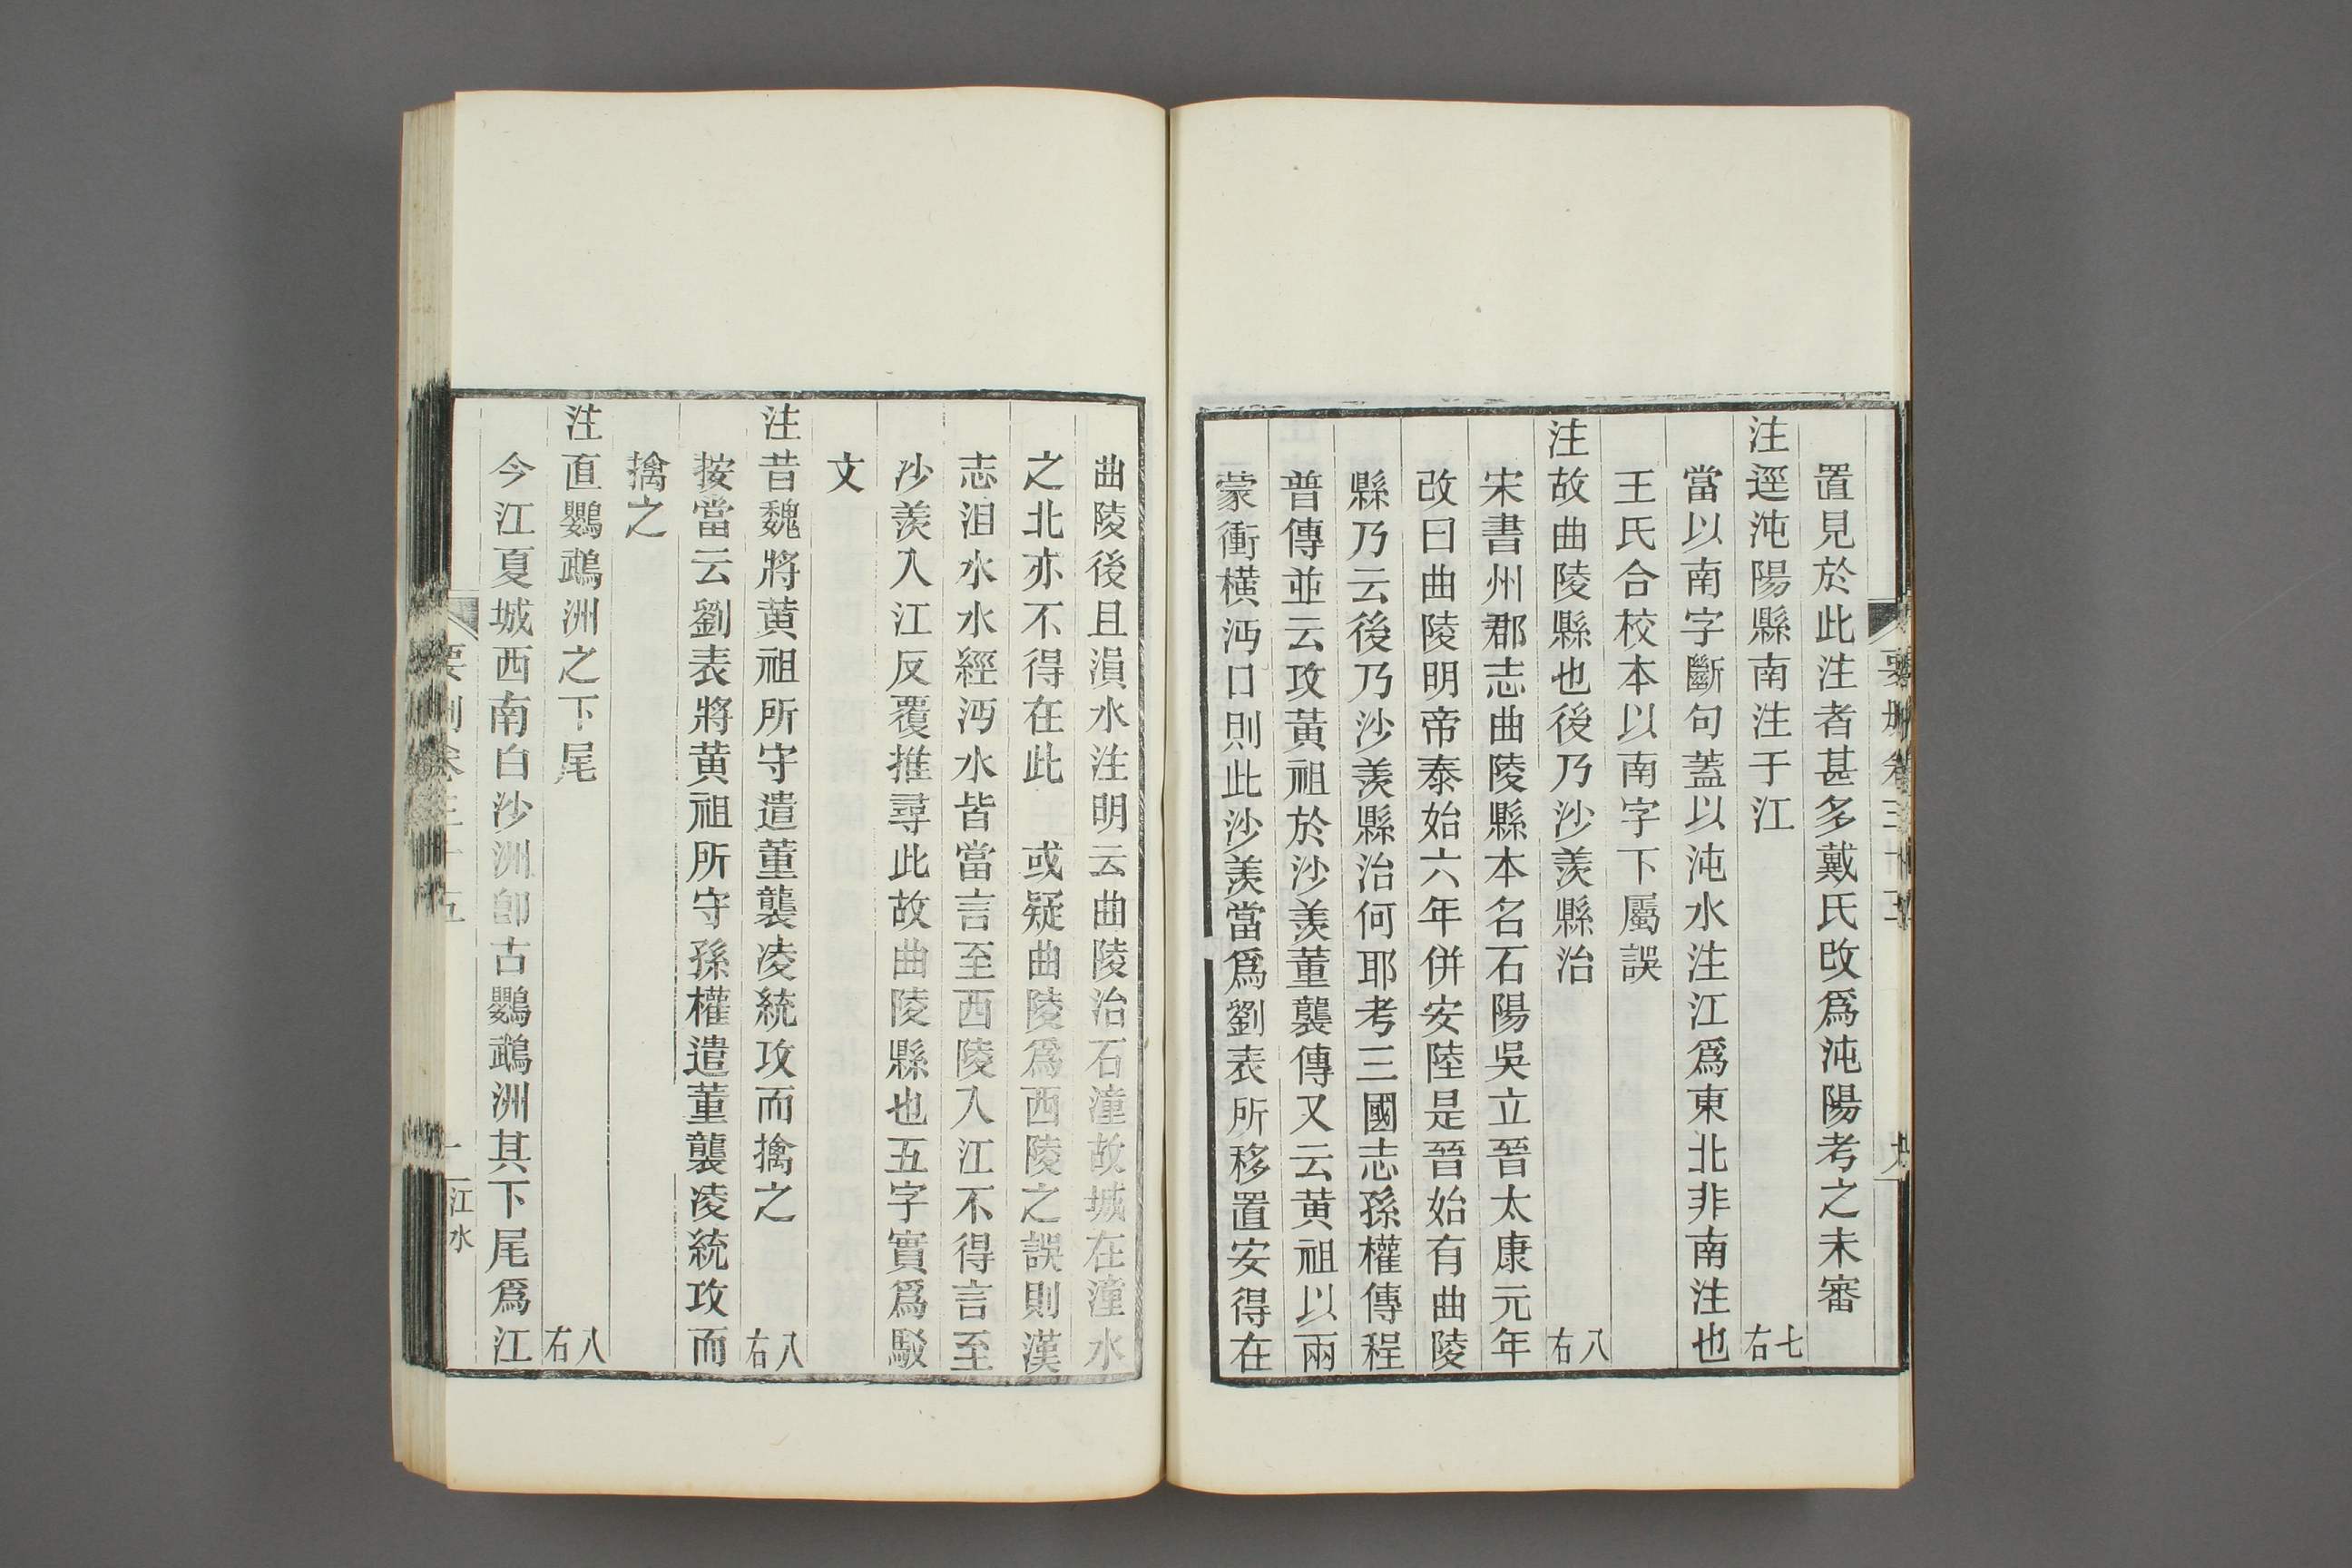 置見於此注者甚多戴氏改爲沌陽考之未審
注逕沌陽縣南注于江 七右
當以南字斷句蓋以沌水注江爲東北非南注也
王氏合校本以南字下屬誤
注故曲陵縣也後乃沙羨縣治 八右
宋書州郡志曲陵縣本名石陽吳立晉太康元年
改曰曲陵明帝泰始六年併安陸是晉始有曲陵
縣乃云後乃沙羨縣治何耶考三國志孫權傳程
普傳並云攻黃祖於沙羨董襲傳又云黄祖以兩
蒙衝橫沔口則此沙羨當爲劉表所移置安得在
曲陵後且溳水注明云曲陵治石潼故城在潼水
之北亦不得在此 或疑曲陵爲西陵之誤則漢
志沮水水經沔水皆當言至西陵入江不得言至
沙羨入江反覆推尋此故曲陵縣也五字實爲駁
文
注昔魏將黄祖所守遣董襲凌統攻而擒之 八右
按當云劉表將黄祖所守孫權遣董襲凌統攻而
擒之
注直鸚鵡洲之下尾 八右
今江夏城西南白沙洲卽古鸚鵡洲其下尾爲江
江水